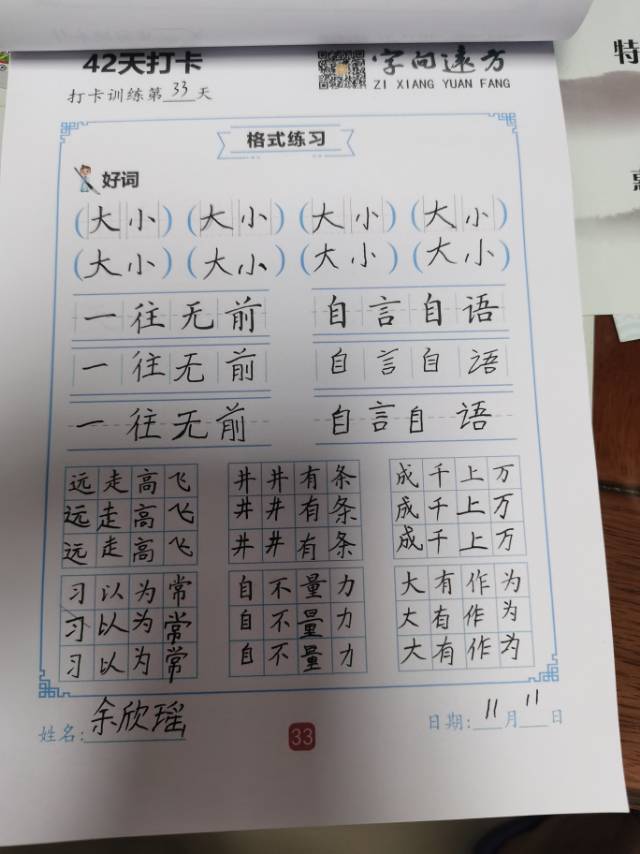 42天打卡
字向远方
ZI XIANG YUAN FANG
打卡训练第33天
格式练习
好词
(大小) (大小) (大小) (大小)
(大小) (大小) (大小) (大小)
一往无前 自言自语
一往无前 自言自语
一往无前 自言自语
远走高飞 井井有条 成千上万
远走高飞 井井有条 成千上万
远走高飞 井井有条 成千上万
习以为常 自不量力 大有作为
习以为常 自不量力 大有作为
习以为常 自不量力 大有作为
姓名:余欣瑶
33
日期:11月11日
特